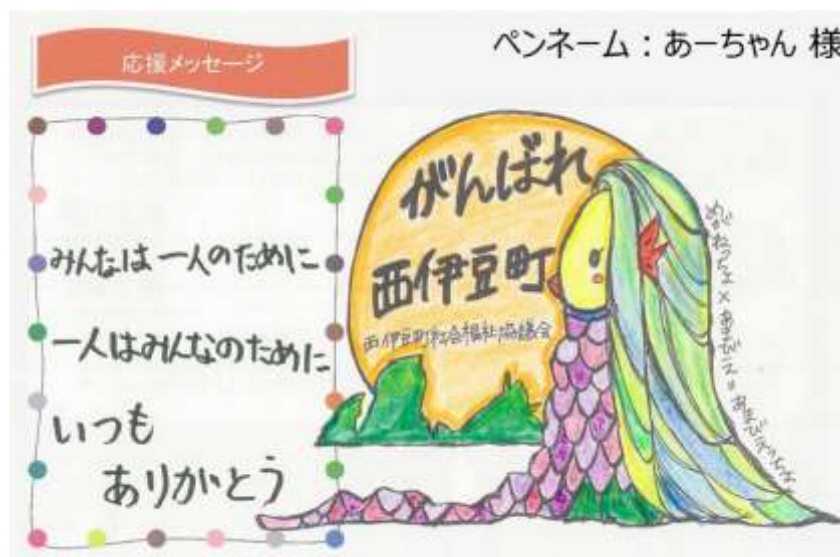 応援メッセージ
ペンネーム：あーちゃん 様
みんなは一人のために
一人はみんなのために
いつも
ありがとう
がんばれ
西伊豆町
西伊豆町社会福祉協議会